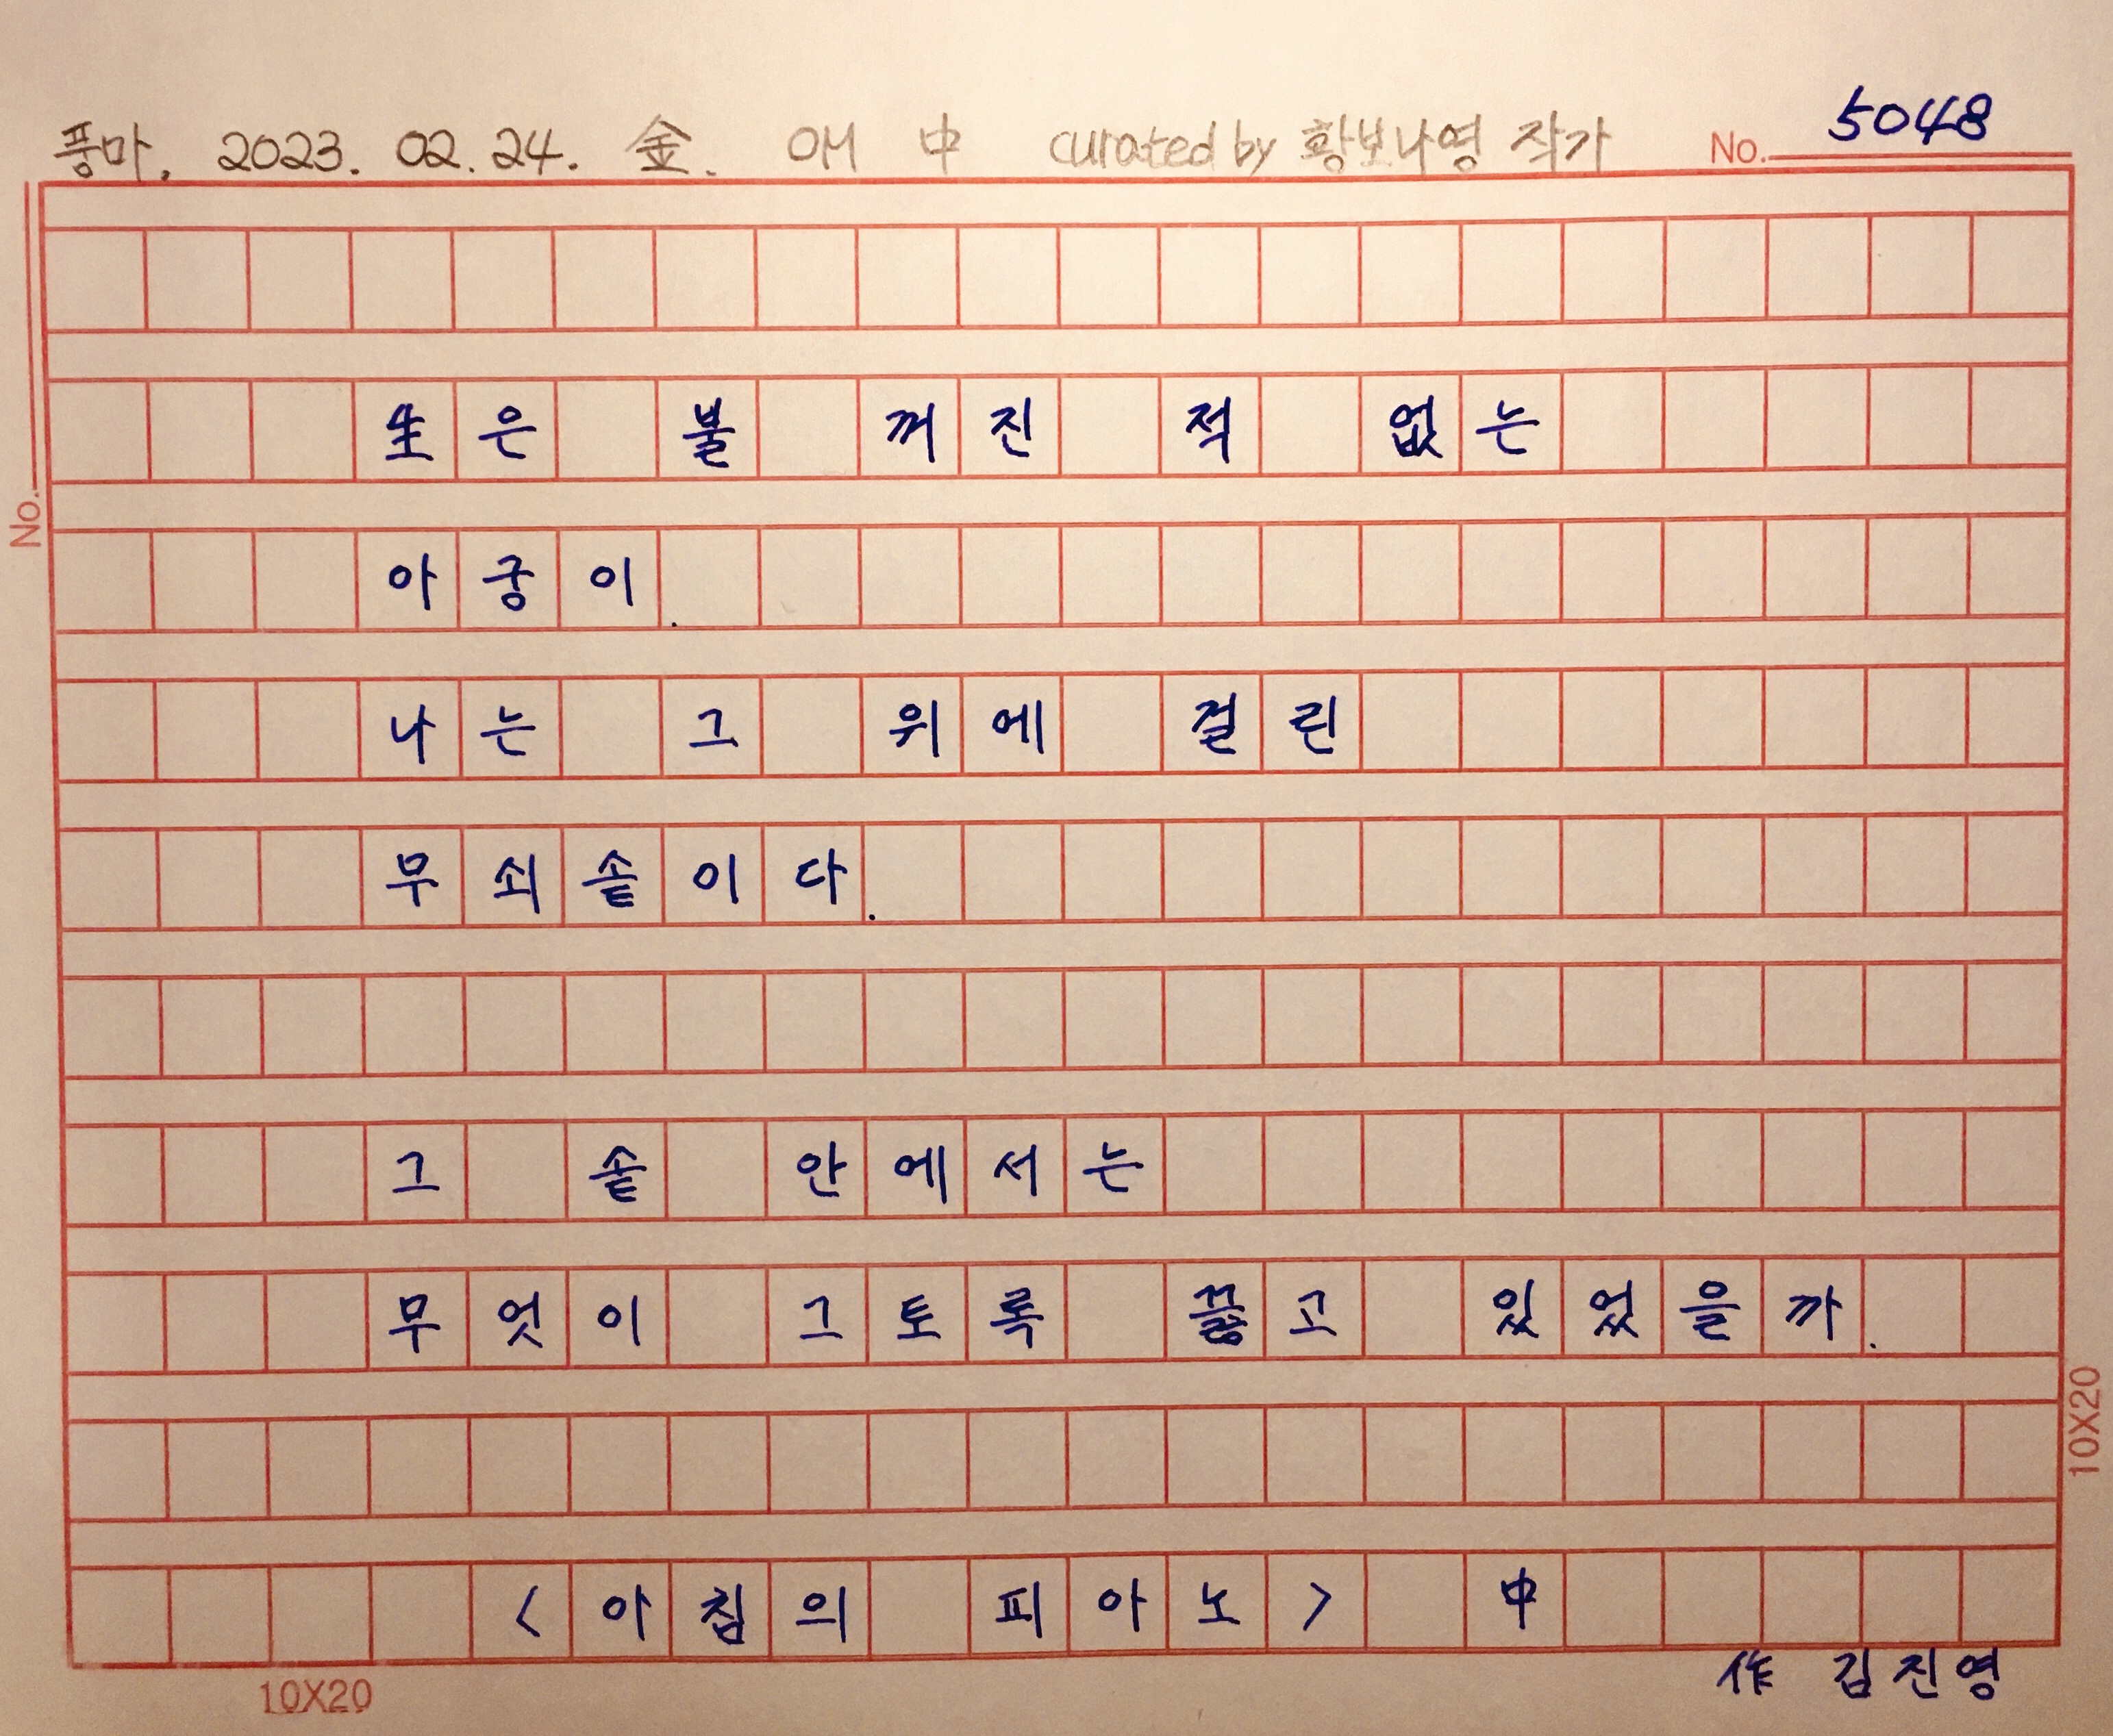 풍마. 2023. 02. 24. 金. OH 中 curated by 황보나영 작가 No. 5048
No.
生은 불 꺼진 적 없는
아궁이.
나는 그 위에 걸린
무쇠솥이다.
그 솥 안에서는
무엇이 그토록 끓고 있었을까.
<아침의 피아노> 中
作 김진영
10X20
10X20